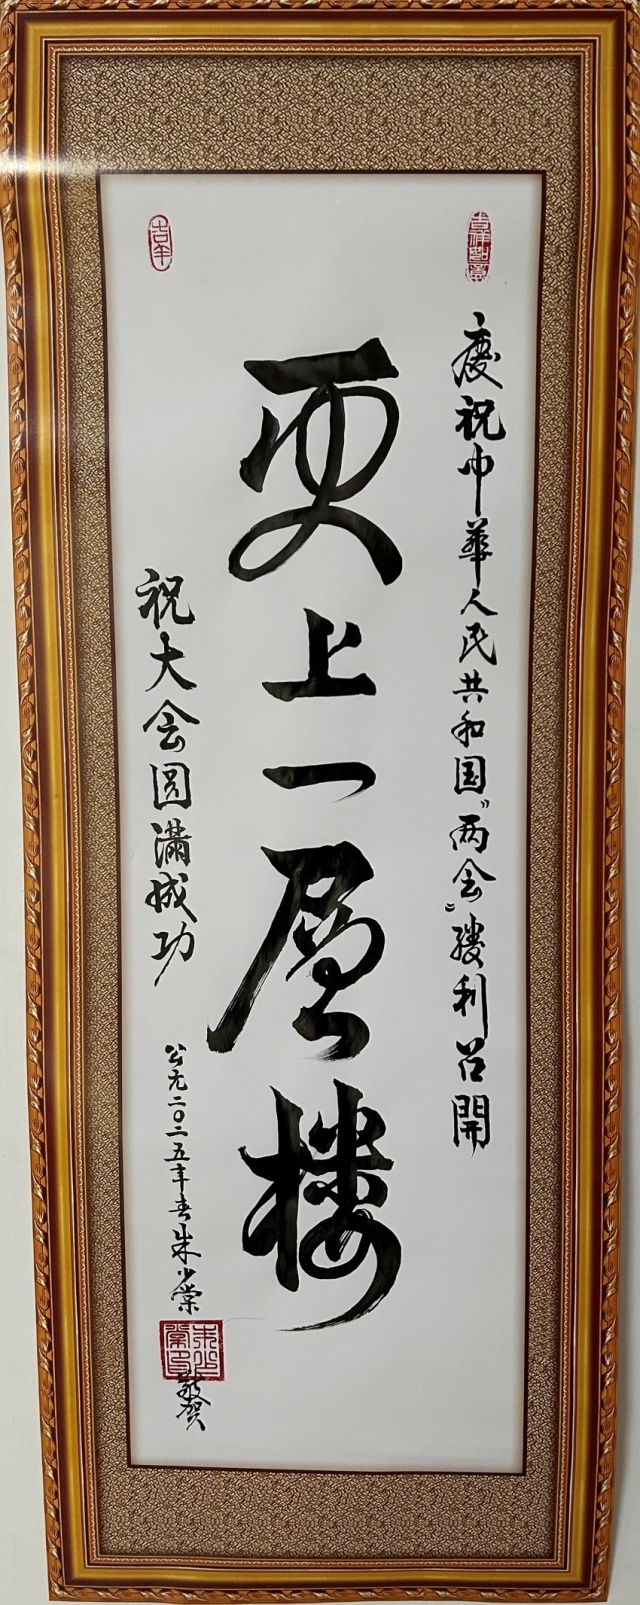 慶祝中華人民共和国"两会"勝利召開
更上一層楼
祝大会圆满成功
公元二〇二五年春朱小棠
敬贺
吉祥如意
吉羊